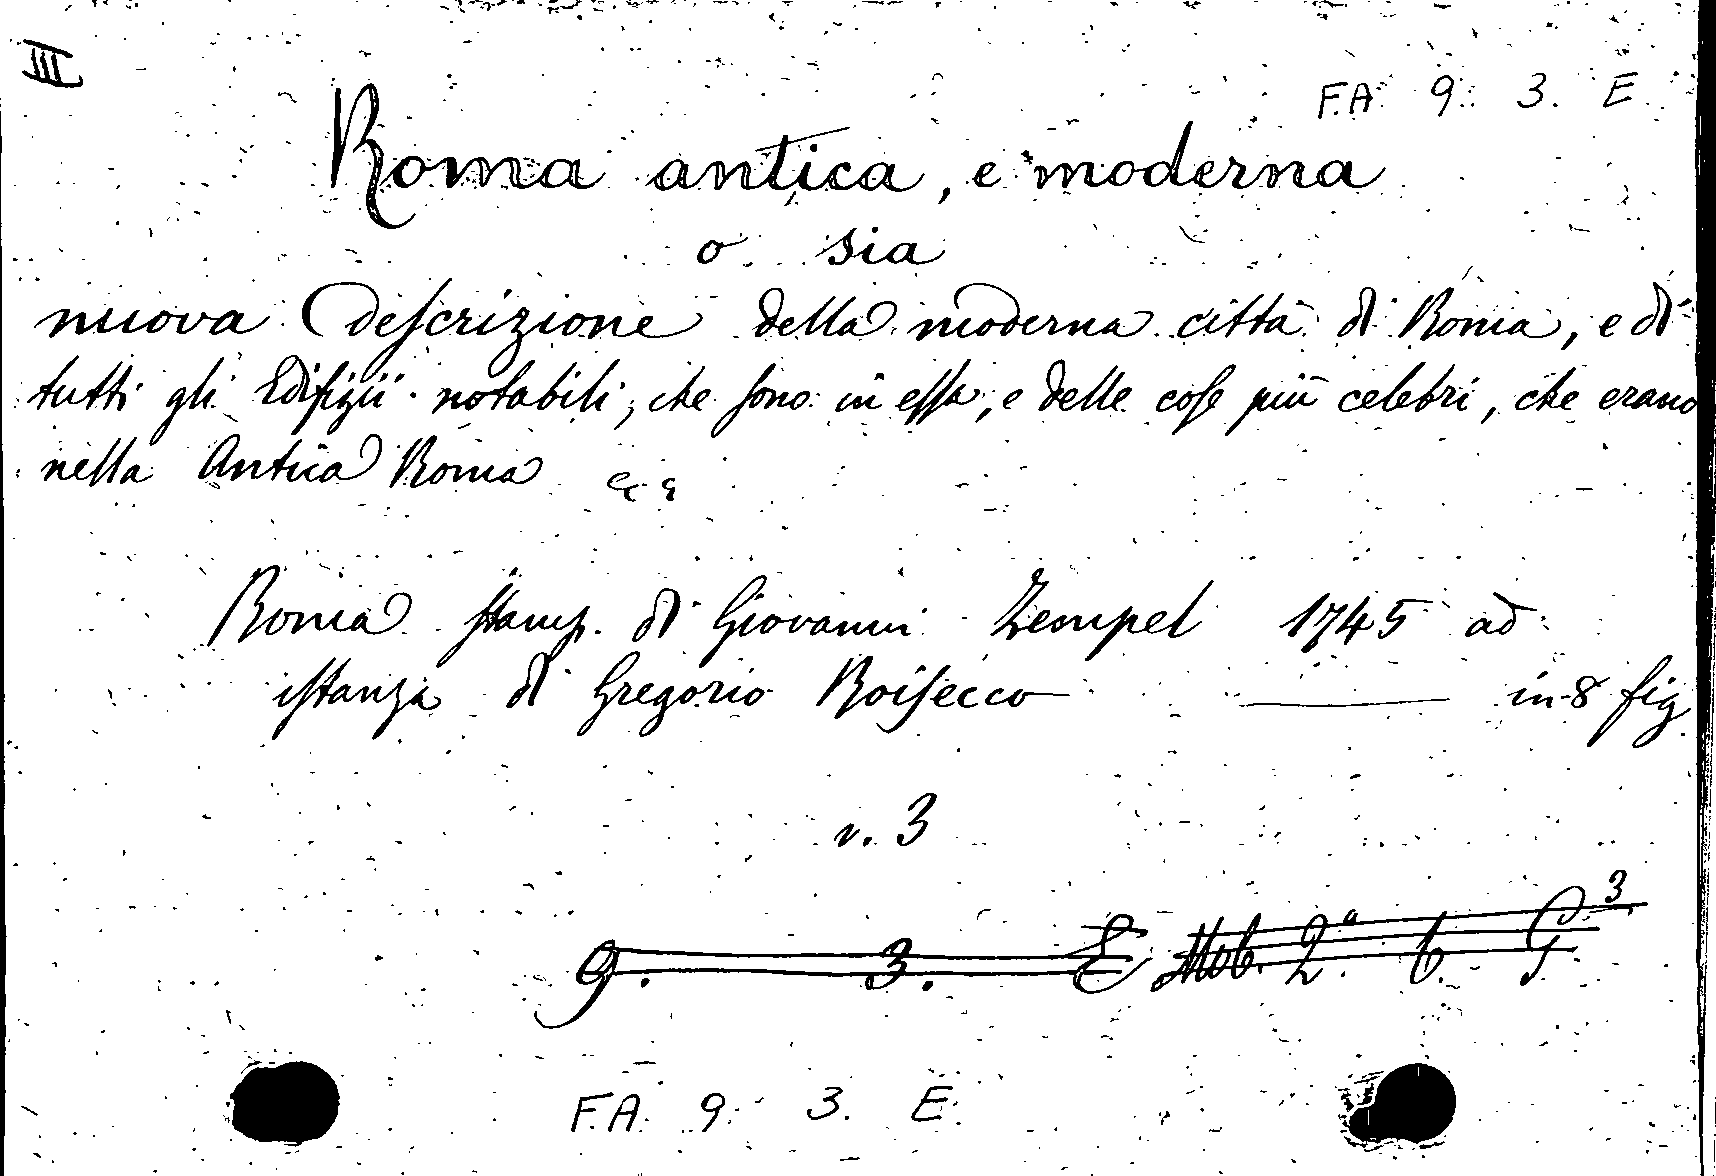 III
F.A. 9. 3. E.
Roma antica, e moderna
o sia
nuova Deſcrizione della moderna città di Roma, e di
tutti gli Edifizii notabili, che ſono in eſſa, e delle coſe più celebri, che erano
nella Antica Roma
Roma ſtamp. di Giovanni Zempel 1745 ad
iſtanza di Gregorio Roiſecco — in-8 fig
v. 3
9. 3. E Mob. 2.ª b. G 3
F.A. 9. 3. E.